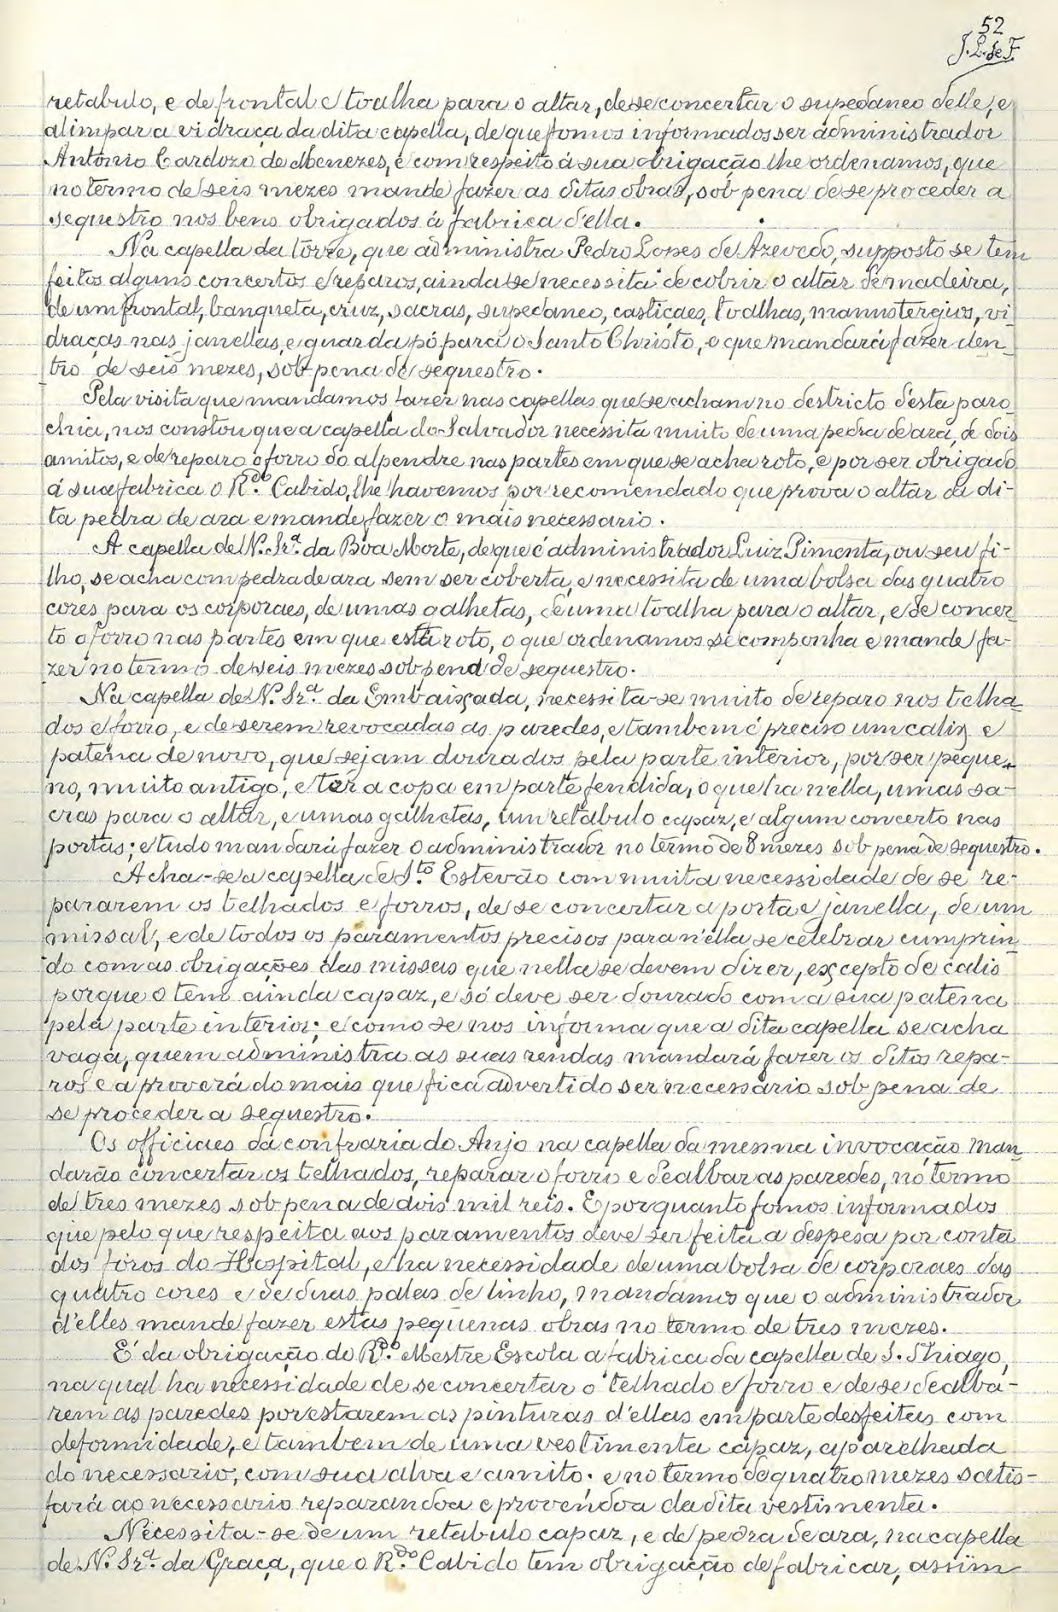 52
J. L. de F.
retabulo, e de frontal e toalha para o altar, de se concertar o supedaneo delle, e
alimpar a vidraça da dita capella, de que fomos informados ser administrador
Antonio Cardozo de Menezes, e com respeito á sua obrigação lhe ordenamos, que
no termo de seis mezes mande fazer as ditas obras, sob pena de se proceder a
sequestro nos bens obrigados á fabrica d'ella.
Na capella da Torre, que administra Pedro Lopes de Azevedo, supposto se tem
feitos alguns concertos e reparos, ainda se necessita de cobrir o altar de madeira,
de um frontal, banqueta, cruz, sacras, supedaneo, castiçaes, toalhas, manustergios, vi-
draças nas janellas, e guarda pó para o Santo Christo, o que mandará fazer den-
tro de seis mezes, sob pena de sequestro.
Pela visita que mandamos fazer nas capellas que se acham no destricto d'esta paro-
chia, nos constou que a capella do Salvador necessita muito de uma pedra de ara, de dois
amitos, e de reparo o forro do alpendre nas partes em que se acha roto, e por ser obrigado
á sua fabrica o R.do Cabido, lhe havemos por recomendado que prova o altar da di-
ta pedra de ara e mande fazer o mais necessario.
A capella de N. Sr.a da Bôa Morte, de que é administrador Luiz Pimenta, ou seu fi-
lho, se acha com pedra de ara sem ser coberta, e necessita de uma bolsa das quatro
cores para os corporaes, de umas galhetas, de uma toalha para o altar, e de concer-
to o forro nas partes em que está roto, o que ordenamos se componha e mande fa-
zer no termo de seis mezes sob pena de sequestro.
Na capella de N. Sr.a da Embaixada, necessita-se muito de reparo nos telha-
dos e forro, e de serem revocadas as paredes, e tambem é preciso um calix e
patena de novo, que sejam dourados pela parte interior, por ser peque-
no, muito antigo, e ter a copa em parte fendida, o que ha n'ella, umas sa-
cras para o altar, e umas galhetas, um retabulo capaz, e algum concerto nas
portas; e tudo mandará fazer o administrador no termo de 8 mezes sob pena de sequestro.
Acha-se a capella de S.to Estevão com muita necessidade de se re-
pararem os telhados e forros, de se concertar a porta e janella, de um
missal, e de todos os paramentos precisos para n'ella se celebrar cumprin-
do com as obrigações das missas que nella se devem dizer, excepto de calis
porque o tem ainda capaz, e só deve ser dourado com a sua patena
pela parte interior; e como se nos informa que a dita capella se acha
vaga, quem administra as suas rendas mandará fazer os ditos repa-
ros e a proverá do mais que fica advertido ser necessario sob pena de
se proceder a sequestro.
Os officiaes da confraria do Anjo na capella da mesma invocação man-
darão concertar os telhados, reparar o forro e dealbar as paredes, no termo
de tres mezes sob pena de dois mil reis. E porquanto fomos informados
que pelo que respeita aos paramentos deve ser feita a despesa por conta
dos foros do Hospital, e ha necessidade de uma bolsa de corporaes das
quatro cores e de duas palas de linho, mandamos que o administrador
d'elles mande fazer estas pequenas obras no termo de tres mezes.
É da obrigação do R.do Mestre Escola a fabrica da capella de S. Thiago,
na qual ha necessidade de se concertar o telhado e forro e de se dealba-
rem as paredes por estarem as pinturas d'ellas em parte desfeitas com
deformidade, e tambem de uma vestimenta capaz, aparelhada
do necessario, com sua alva e amito. e no termo de quatro mezes satis-
fará ao necessario reparando-a e provendo-a da dita vestimenta.
Necessita-se de um retabulo capaz, e de pedra de ara, na capella
de N. Sr.a da Graça, que o R.do Cabido tem obrigação de fabricar, assim